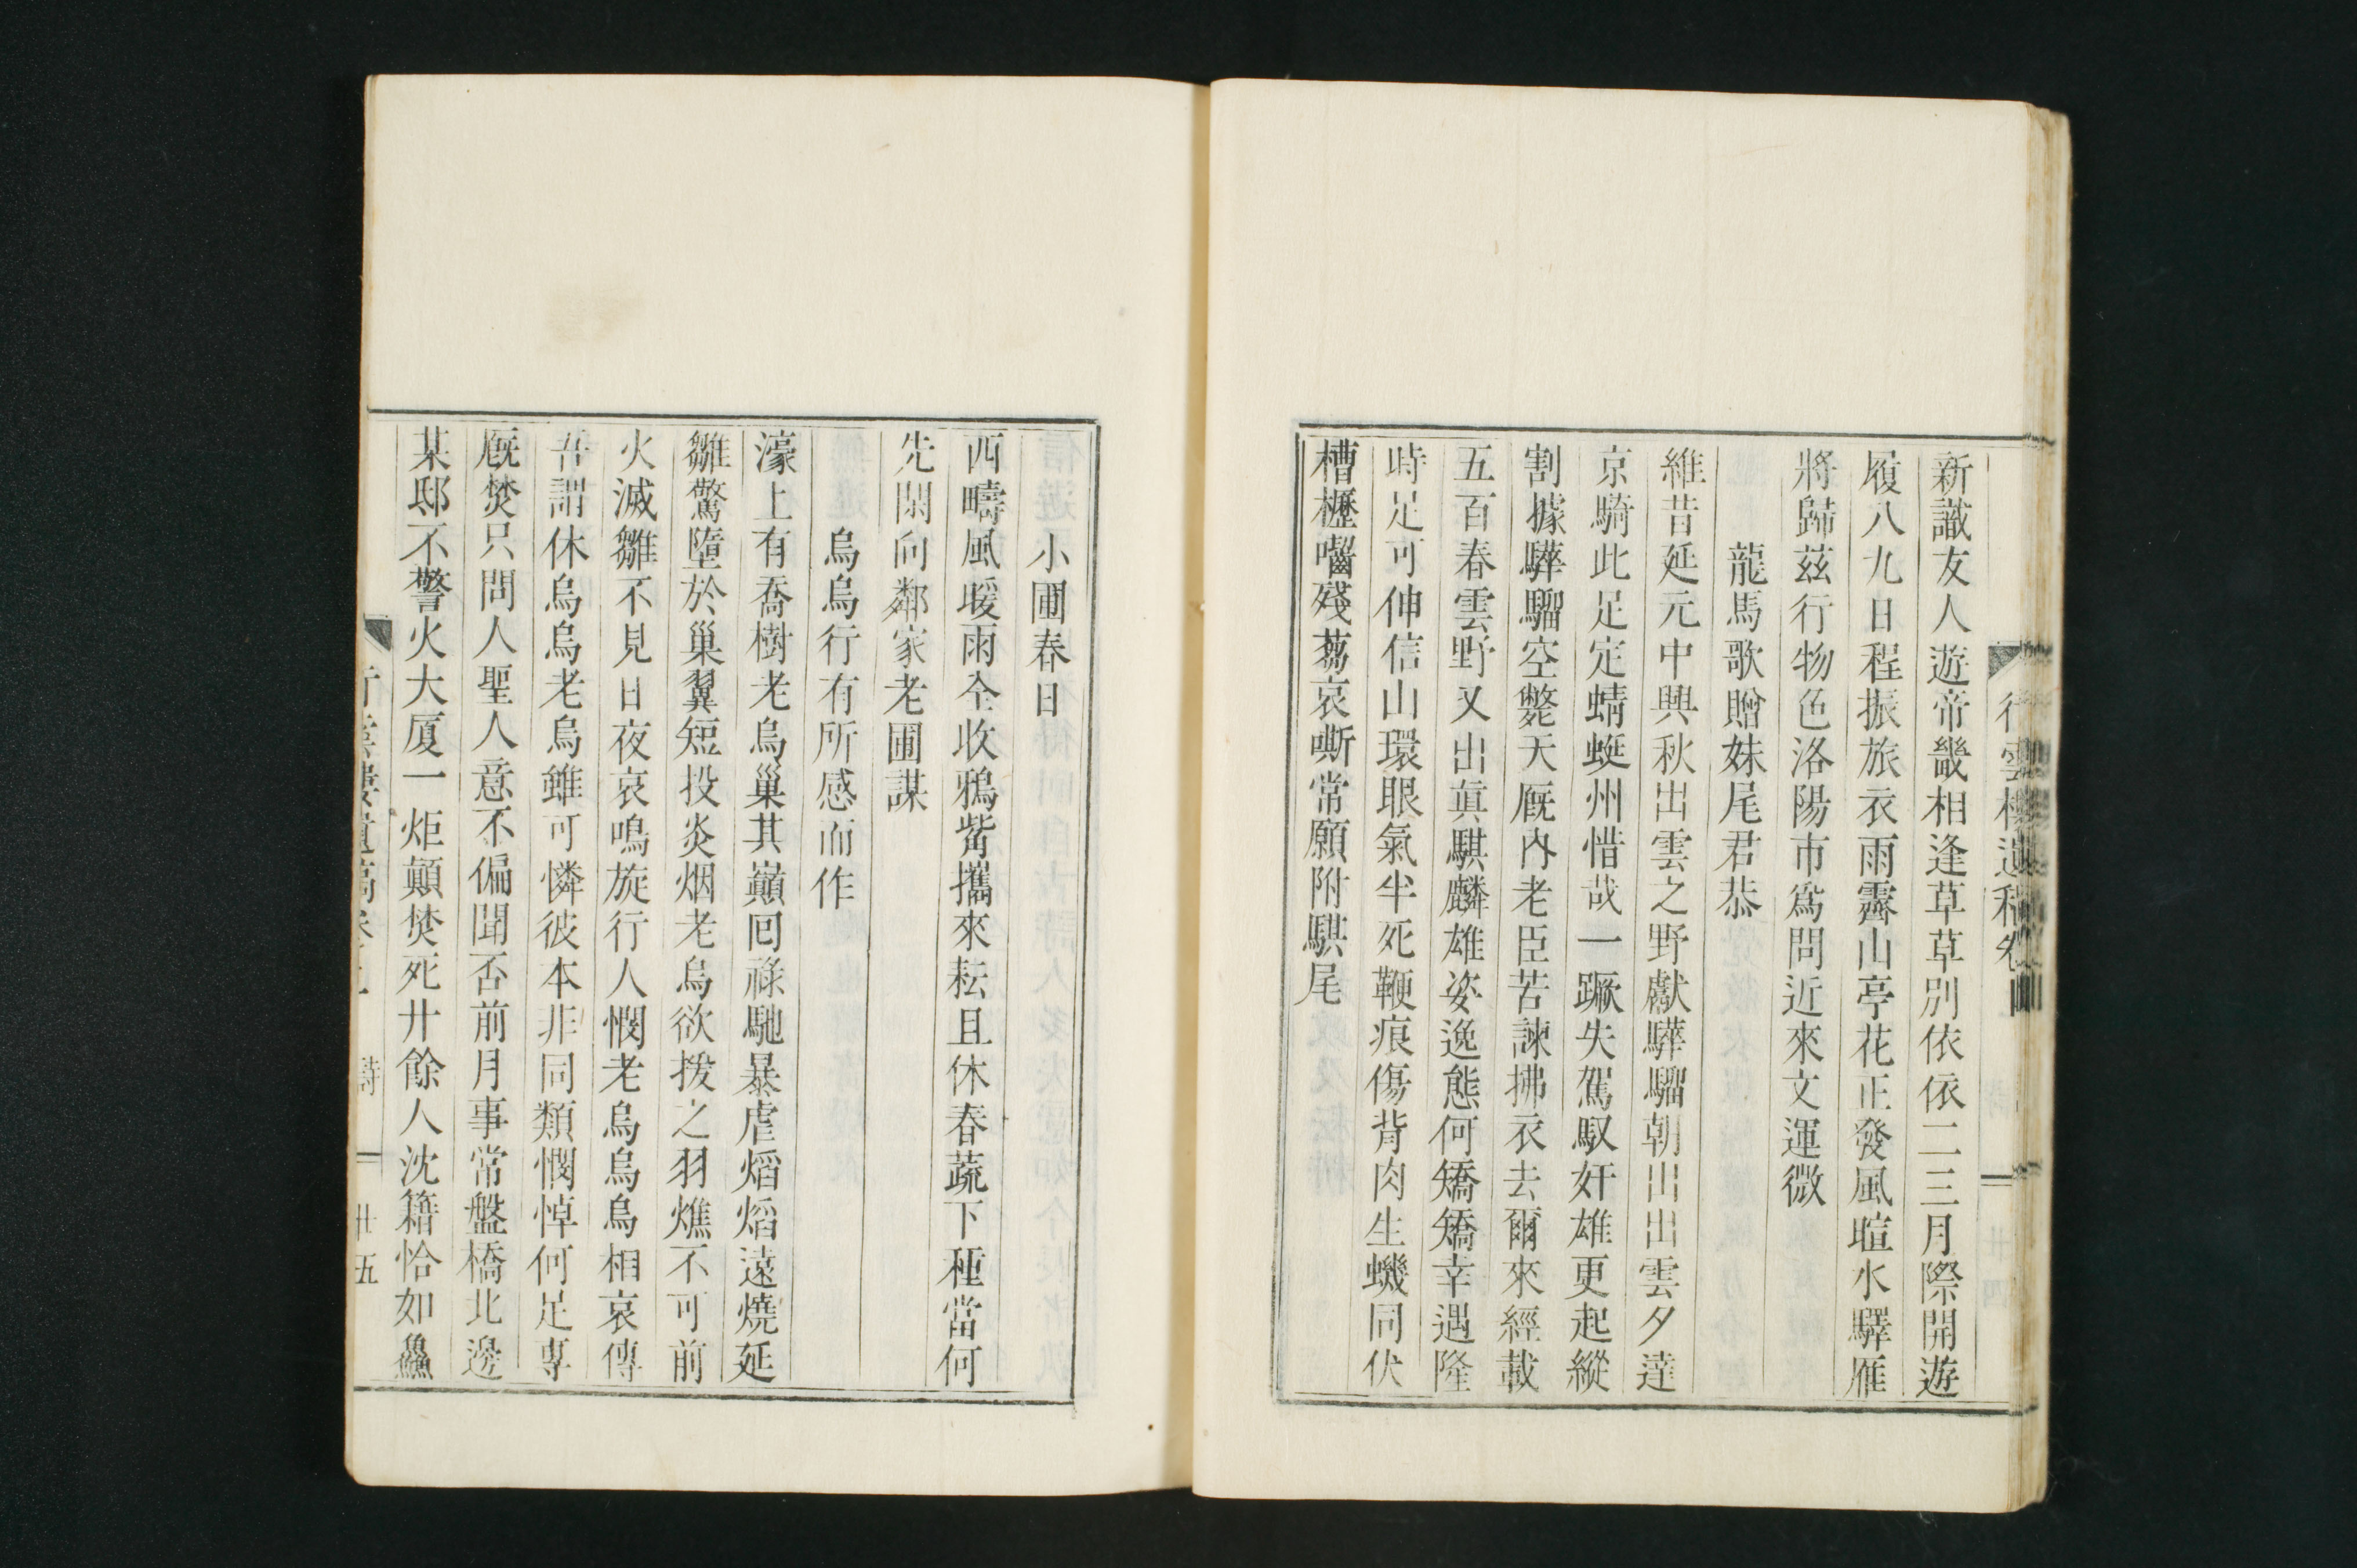 新識友人遊帝畿相逢草草別依依二三月際開遊
履八九日程振旅衣雨霽山亭花正發風暄水驛雁
將歸茲行物色洛陽市爲問近來文運微
龍馬歌贈妹尾君恭
維昔延元中興秋出雲之野獻驊騮朝出出雲夕達
京騎此足定蜻蜓州惜哉一蹶失駕馭奸雄更起縱
割據驊騮空斃天厩內老臣苦諫拂衣去爾來經載
五百春雲野又出眞騏麟雄姿逸態何矯矯幸遇隆
時足可伸信山環眼氣半死鞭痕傷背肉生蟣同伏
槽櫪嚙殘蒭哀嘶常願附騏尾
小圃春日
西疇風暖雨全收鴉觜攜來耘且休春蔬下種當何
先閑向鄰家老圃謀
烏烏行有所感而作
濠上有喬樹老烏巢其巓回祿馳暴虐熖熖遠燒延
雛驚墮於巢翼短投炎烟老烏欲拨之羽燋不可前
火滅雛不見日夜哀鳴旋行人憫老烏烏烏相哀傳
吾謂休烏烏老烏雖可憐彼本非同類憫悼何足專
厩焚只問人聖人意不偏聞否前月事常盤橋北邊
某邸不警火大厦一炬顚焚死廾餘人沈籍恰如鱻
行雲樓遺稿卷
詩
廿五